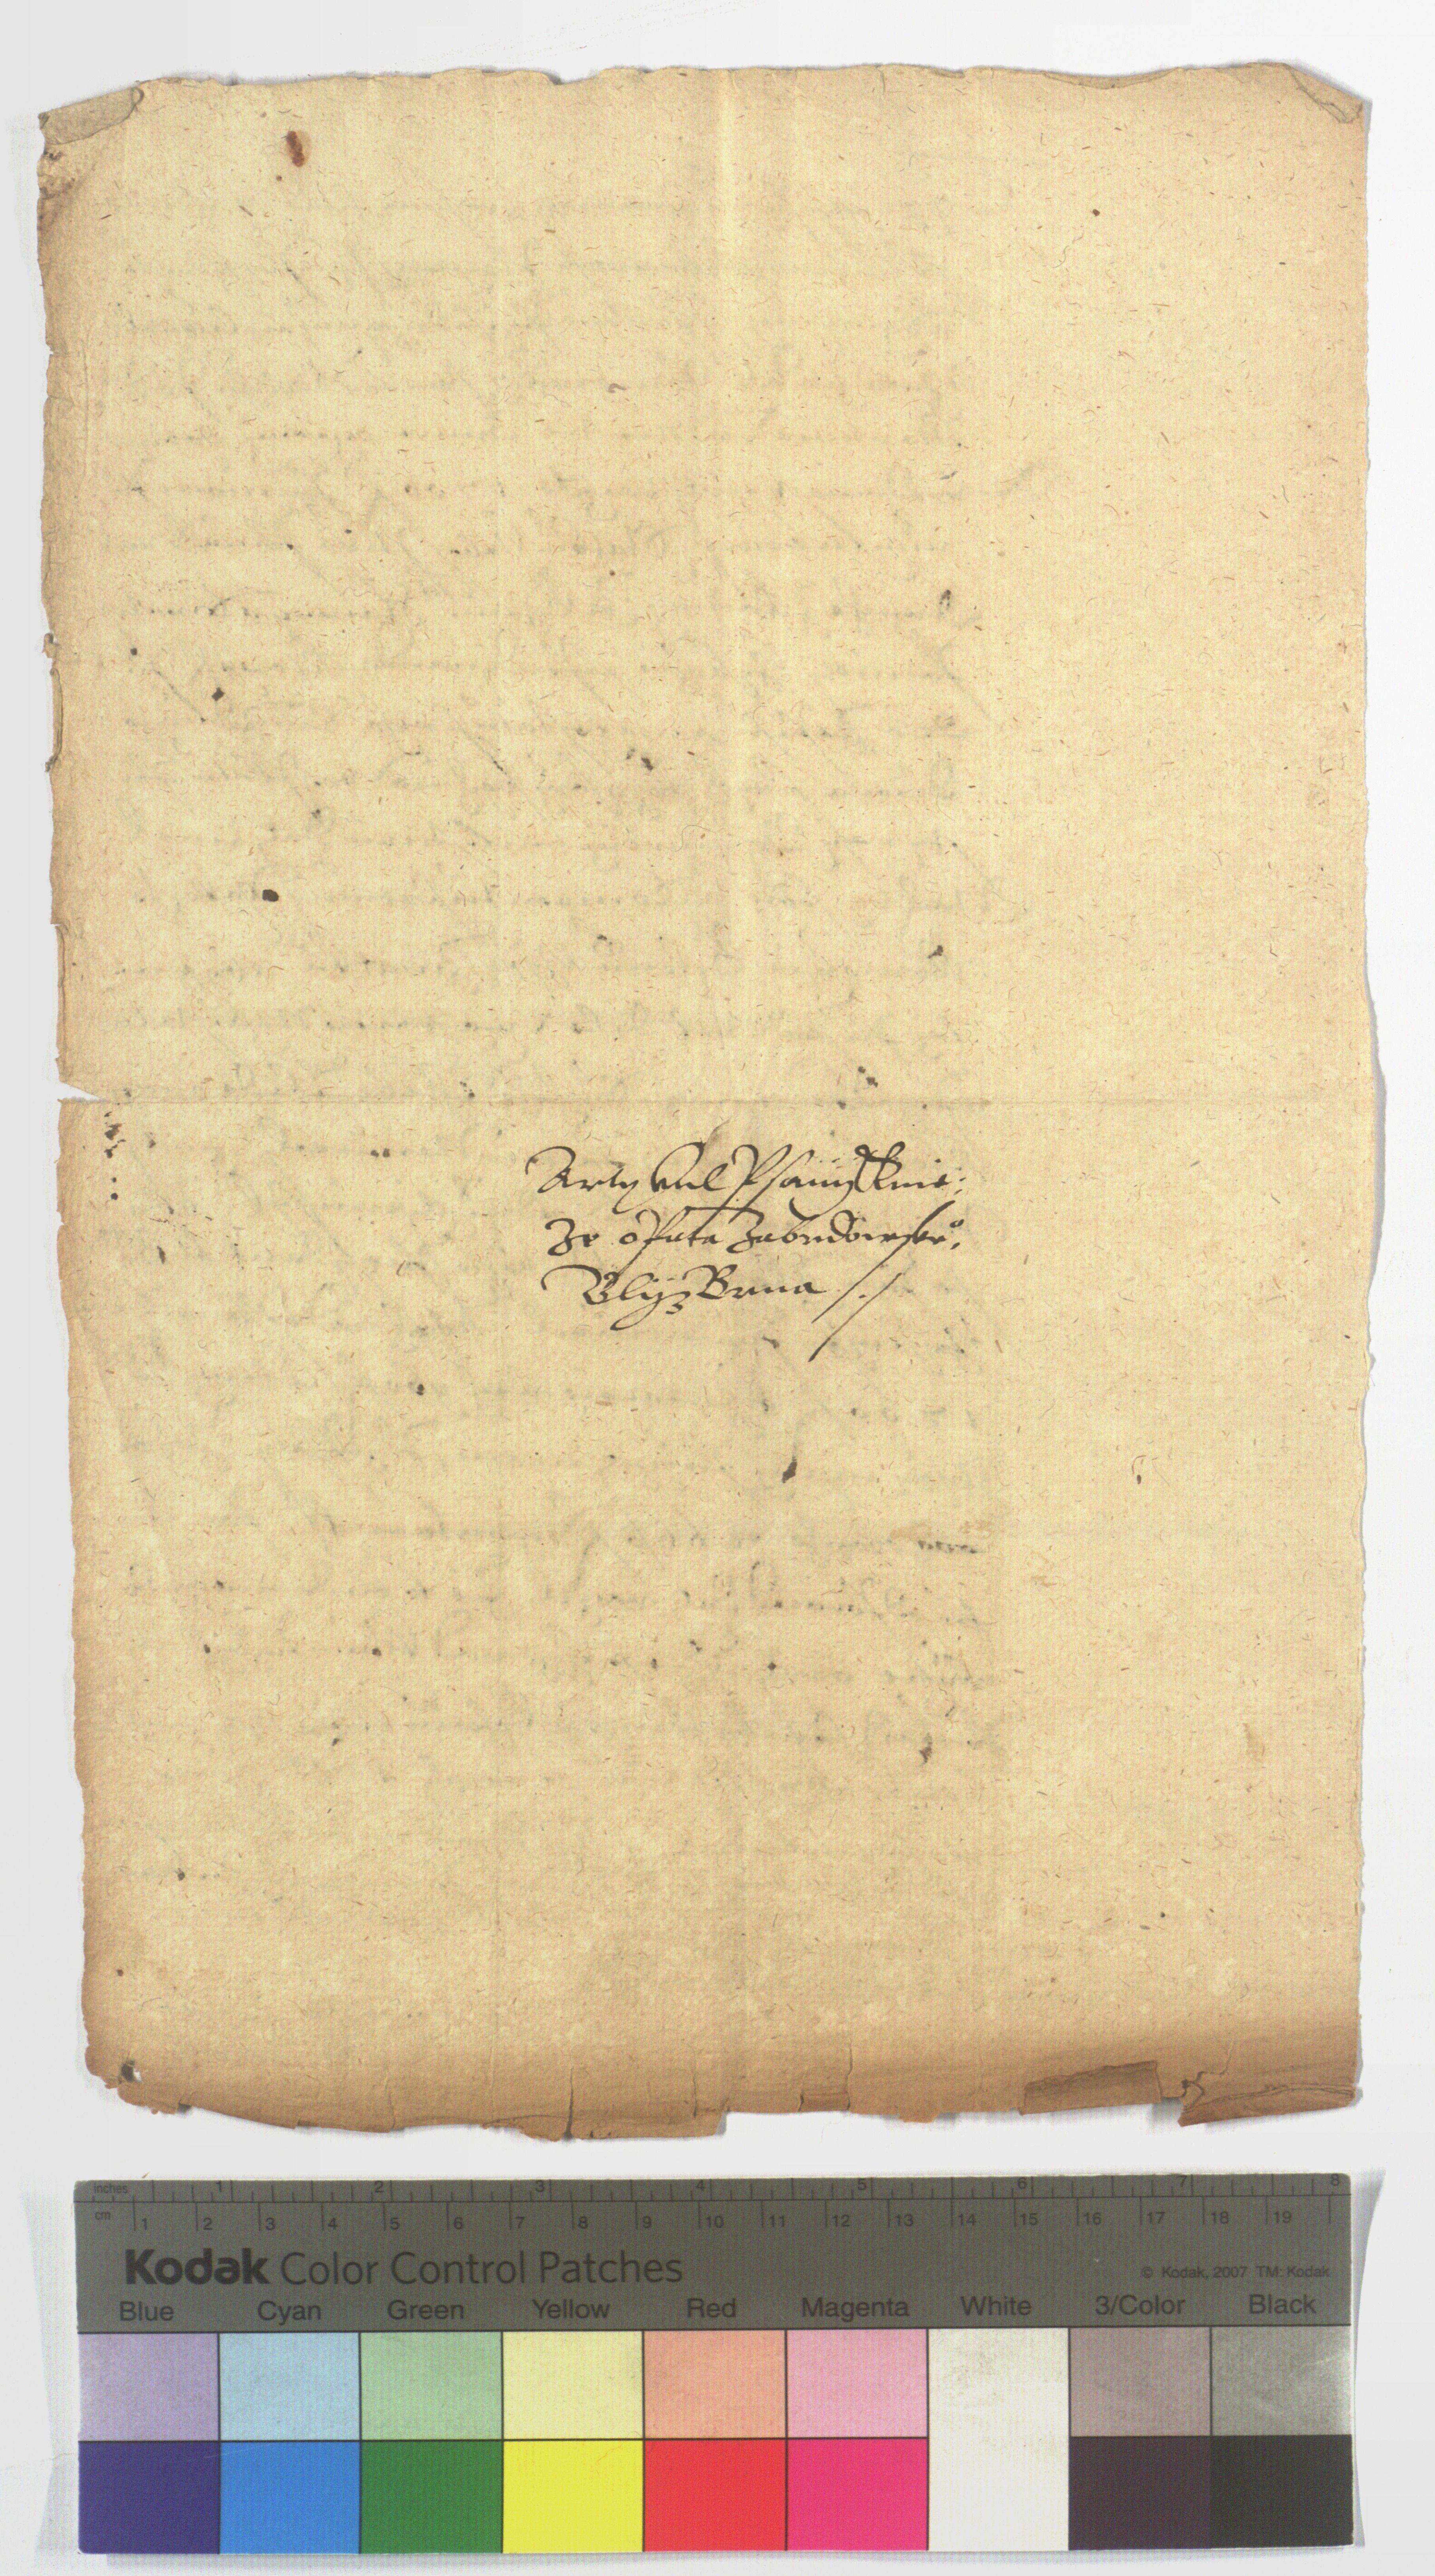 Artykul Psanij Knie:
ze opata Zabrdowske°,
Blijz Brna /./
inches 1 2 3 4 5 6 7 8
cm 1 2 3 4 5 6 7 8 9 10 11 12 13 14 15 16 17 18 19
Kodak Color Control Patches
© Kodak, 2007 TM: Kodak
Blue Cyan Green Yellow Red Magenta White 3/Color Black